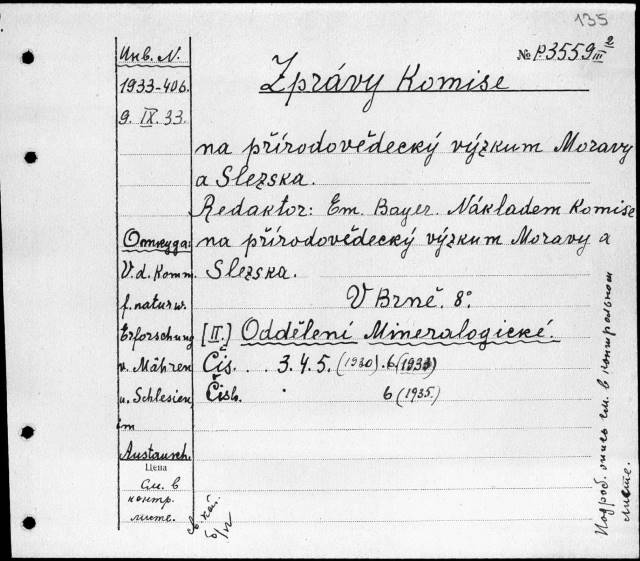 135
Инв. N.
№ P.3559 III 2
Zprávy Komise
1933-406.
9. IX. 33.
na přírodovědecký výzkum Moravy
a Slezska.
Redaktor: Em. Bayer. Nákladem Komise
Откуда:
na přírodovědecký výzkum Moravy a
V. d. Komm.
Slezska.
f. naturw.
V Brně. 8°.
Erforschung
[II.] Oddělení Mineralogické.
v. Mähren
Čis. . . 3. 4. 5. (1930). 6 (1933)
u. Schlesien
Čísl. 6 (1935.)
im
Austausch.
Цена
См. в
контр.
листе.
св. кат.
Подроб. опись см. в контрольном
листе.